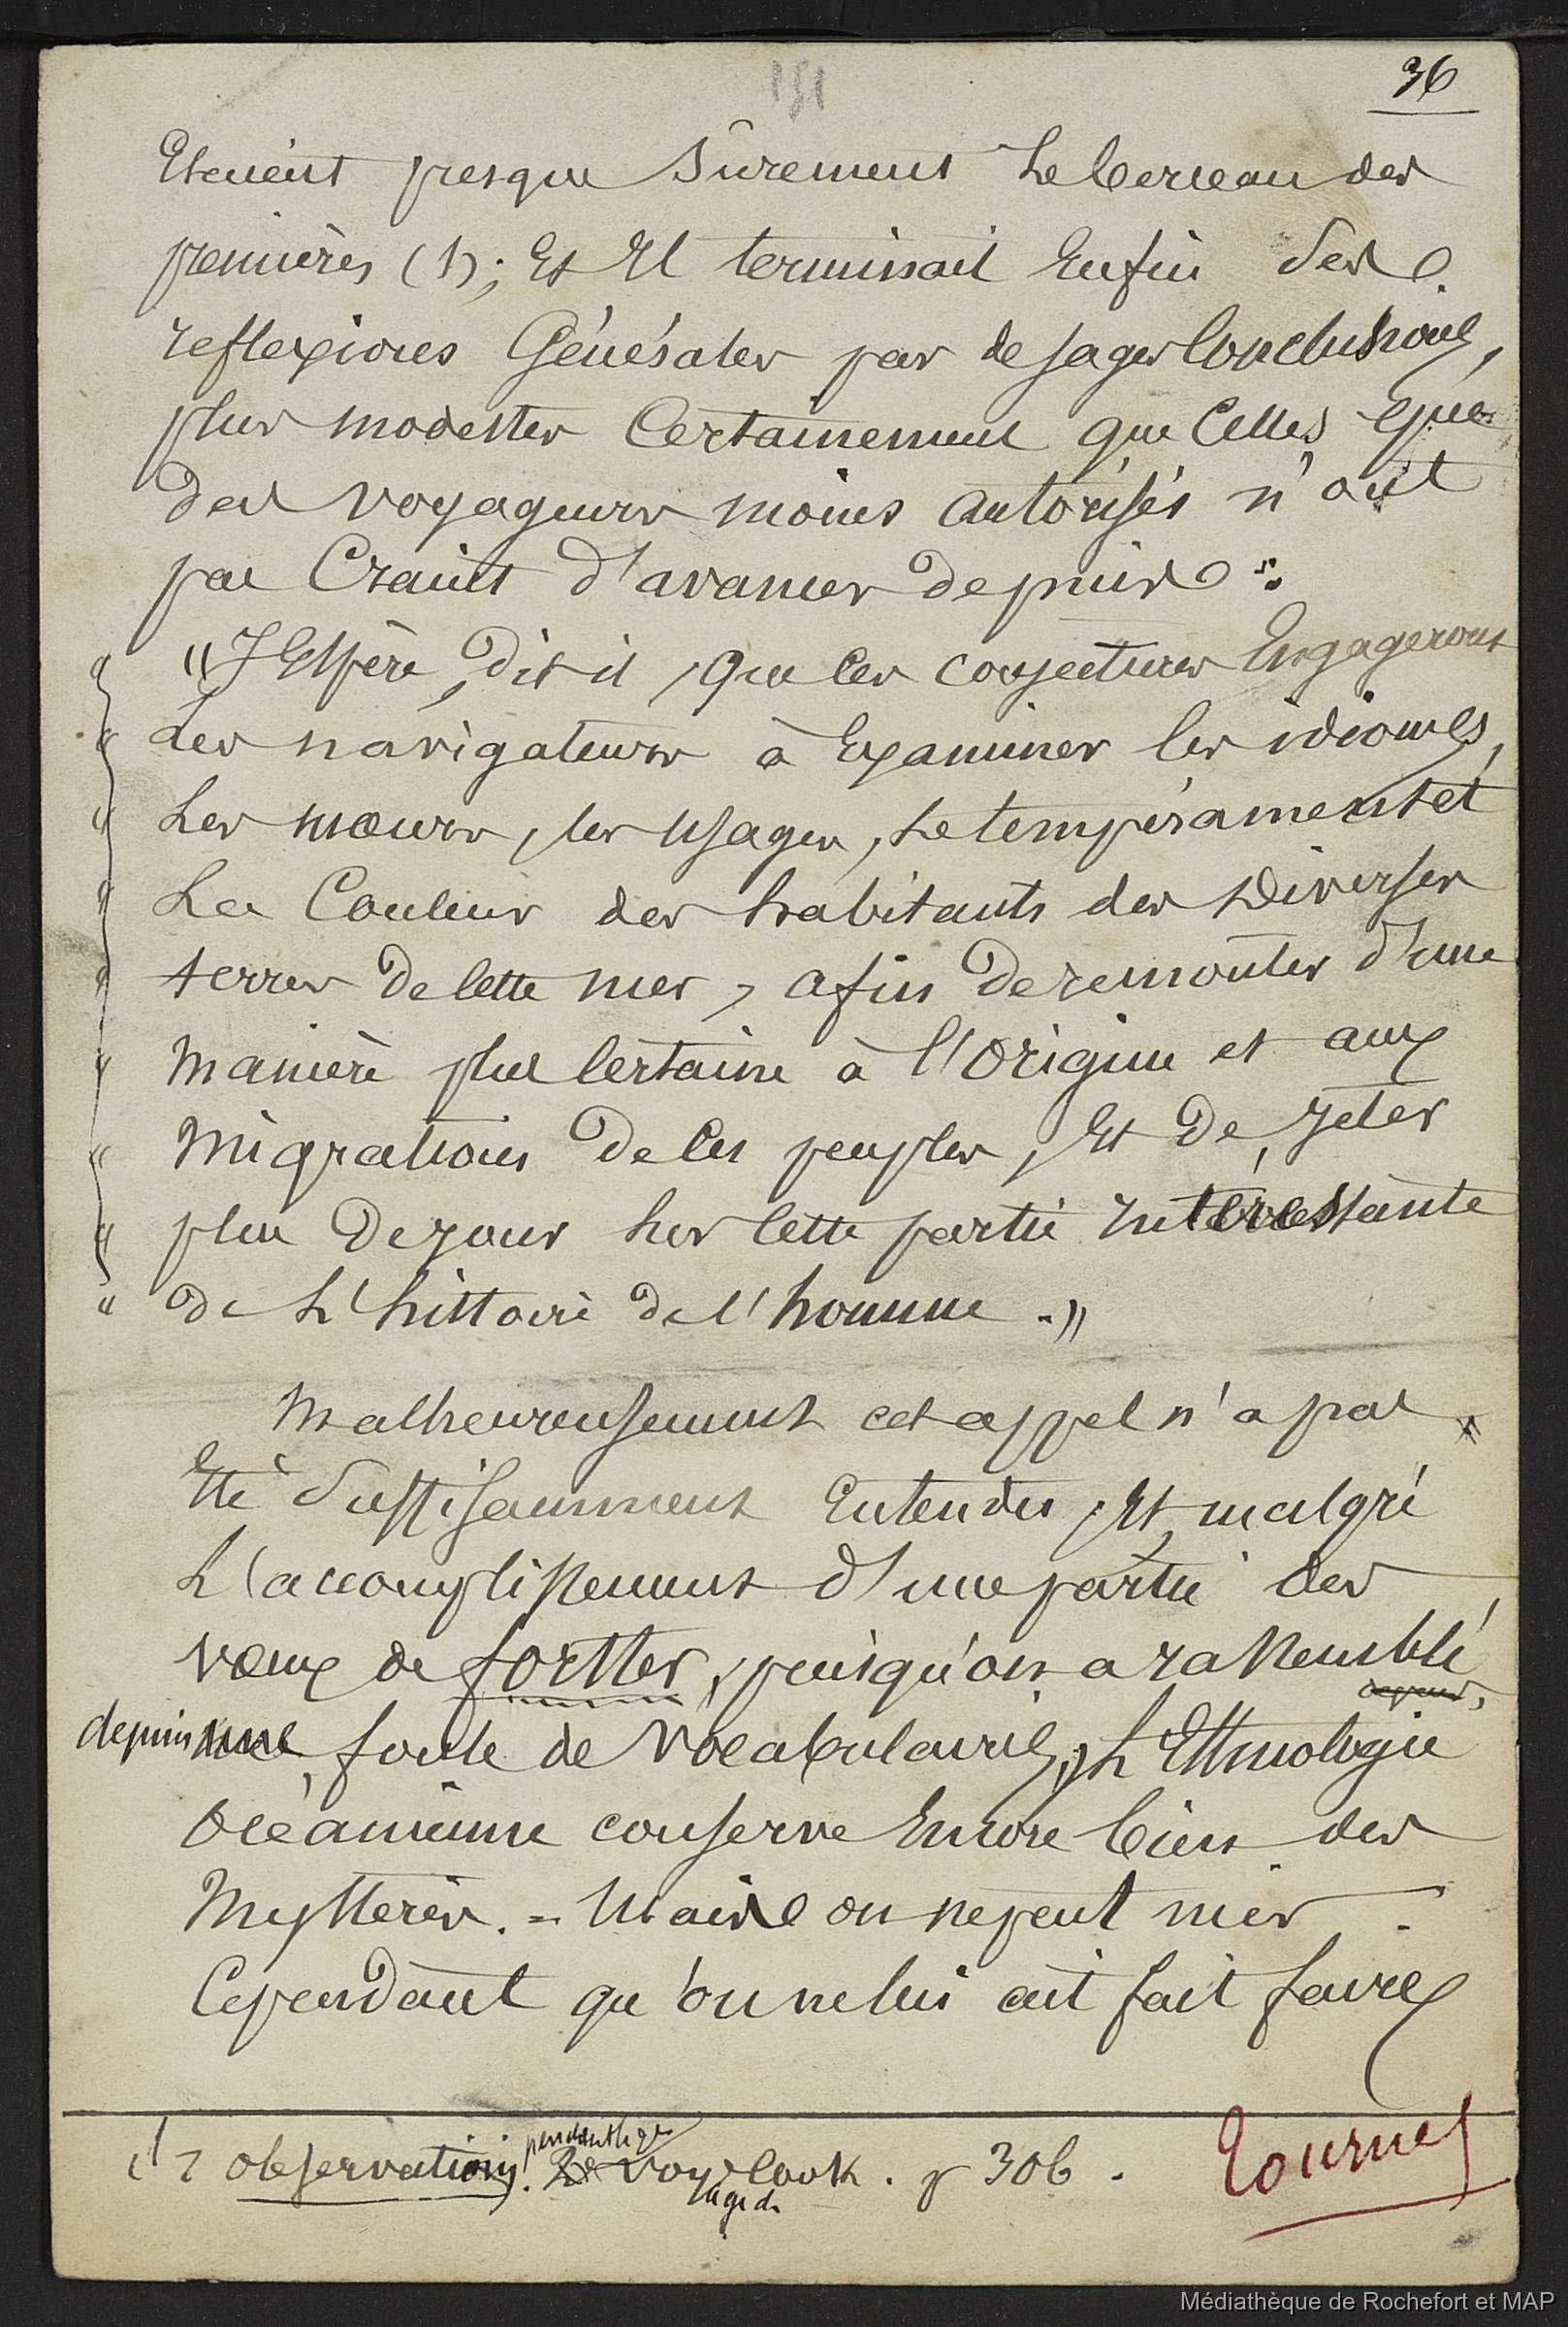 151
36
Etaient presque Sûrement Le berceau des
premières (1); Et Il terminait Enfin Ses
reflexions Générales par de sages Conclusions,
plus modestes Certainement que Celles que
des voyageurs moins autorisés n'ont
pas Craint d'avancer depuis :
"J'Espère, dit-il, que les conjectures Engageront
" Les navigateurs à Examiner les idiomes,
" Les mœurs, les usages, Le tempérament et
" La Couleur des habitants des Diverses
" terres de Cette mer, afin de remonter d'une
" Manière plus Certaine à l'Origine et aux
" Migrations de Ces peuples, Et de Jeter
" plus de jour sur Cette partie Intéressante
" de L'histoire de l'homme."
Malheureusement cet appel n'a pas
Été Suffisamment Entendu, Et malgré
L'accomplissement d'une partie des
vœux de forster, puisqu'on a rassemblé
depuis une foule de Vocabulaires, L'Ethnologie
Océanienne conserve Encore bien des
Mystères. = Mais on ne peut nier
Cependant qu'on ne lui ait fait faire
(1) Observations. pendant le 2e voyage de Cook. p 306.
Tournez
Médiathèque de Rochefort et MAP